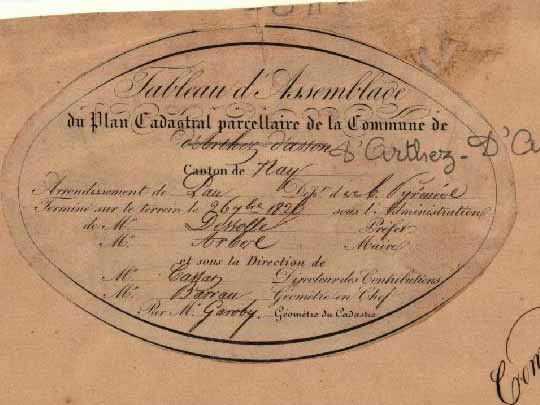 Tableau d'Assemblage
du Plan Cadastral parcellaire de la Commune de
d'Arthez d'asson D'Arthez - D'A
Canton de Nay
Arrondissement de Pau Dépt. des b. Pyrénées
Terminé sur le terrein le 26 7bre sous l'Administration
de Mr. Préfet
Mr. Maire
et sous la Direction de
Mr. Directeur des Contributions
Mr. Barrau Géomètre en Chef
Par Mr. Garoby, Géomètre du Cadastre